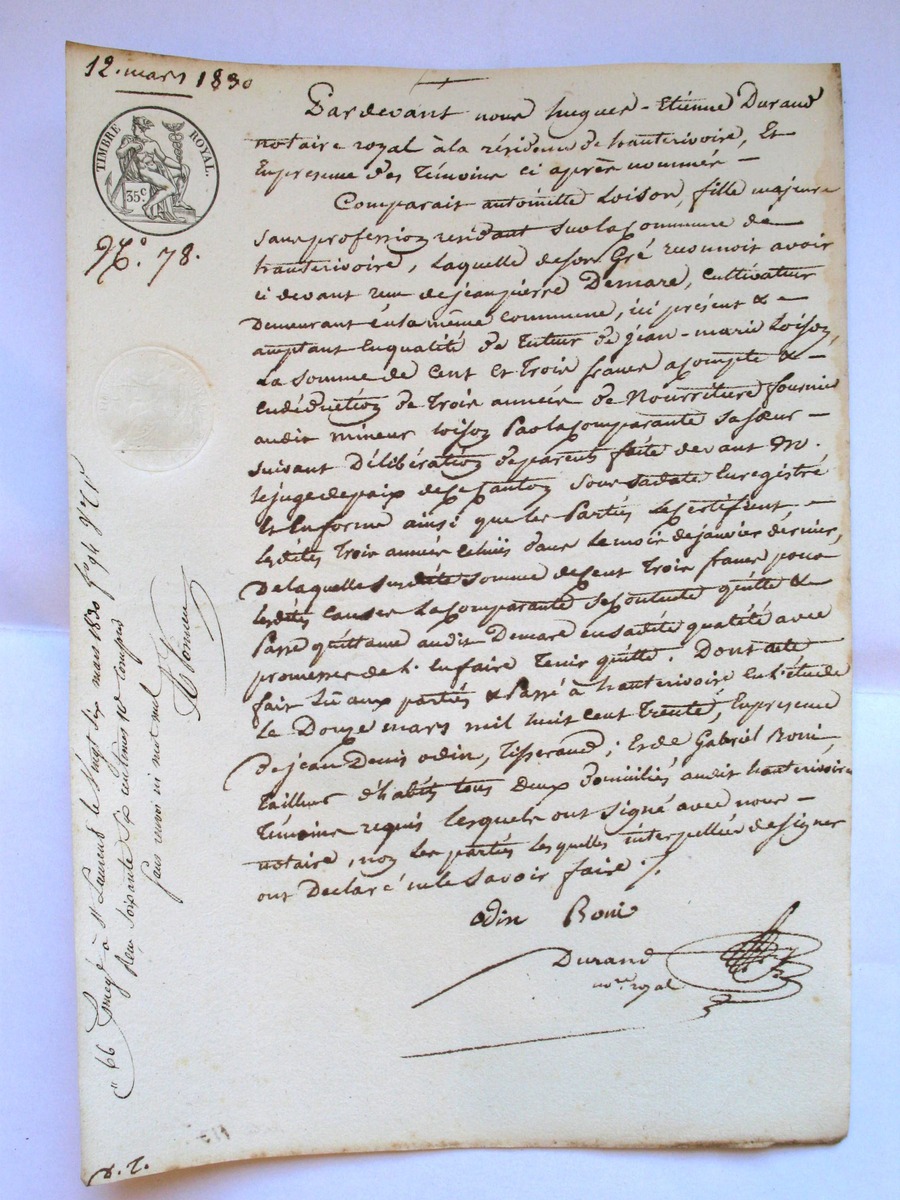 12. mars 1830
TIMBRE ROYAL.
35.c
N.o 78.
Pardevant nous hugues-Etienne Durand
notaire royal à la résidence de hauterivoire, Et
En presence des Témoins ci après nommés -
Comparait antoinette Loison, fille majeure
sans profession residant sur la Commune de
hauterivoire, Laquelle de son Gré reconnoit avoir
ci devant reçu de jean pierre Demare, cultivateur
Demeurant en la même commune, ici présent & -
acceptant En qualité de Tuteur de jean-marie Loison,
La somme de Cent Et Trois francs acompte & -
En déduction de Trois années de Nourriture fournie
audit mineur Loison Par la Comparante sa sœur -
suivant Délibération de parents faite devant M.
le juge de paix de ce Canton sous sa date Enregistré
Et En forme ainsi que les Parties Le Certifient, -
Lesdites Trois années Echues dans le mois de janvier dernier,
De laquelle susdite somme de Cent Trois francs pour
lesdites Causes La Comparante se Contente quitte &
Passe quittance audit Demare en sadite qualité avec
promesse de L'En faire Tenir quitte. Dont acte
fait Lu aux parties & Passé à hauterivoire En l'étude
Le Douze mars mil huit Cent Trente, En presence
de jean Denis odin, Tisserand; Et de Gabriel Boni,
Tailleur d'habits tous deux domiciliés audit hauterivoire
Témoins requis lesquels ont signé avec nous -
notaire, non les parties lesquelles interpellées de signer
ont Declaré ne le savoir faire ./.
odin Boni
Durand
no.re royal
66 Enregé à St Laurent le Vingt six mars 1830 fo 94
Reçu soixante six centimes 10e compris
sans renvoi ni mot nul
d. T.